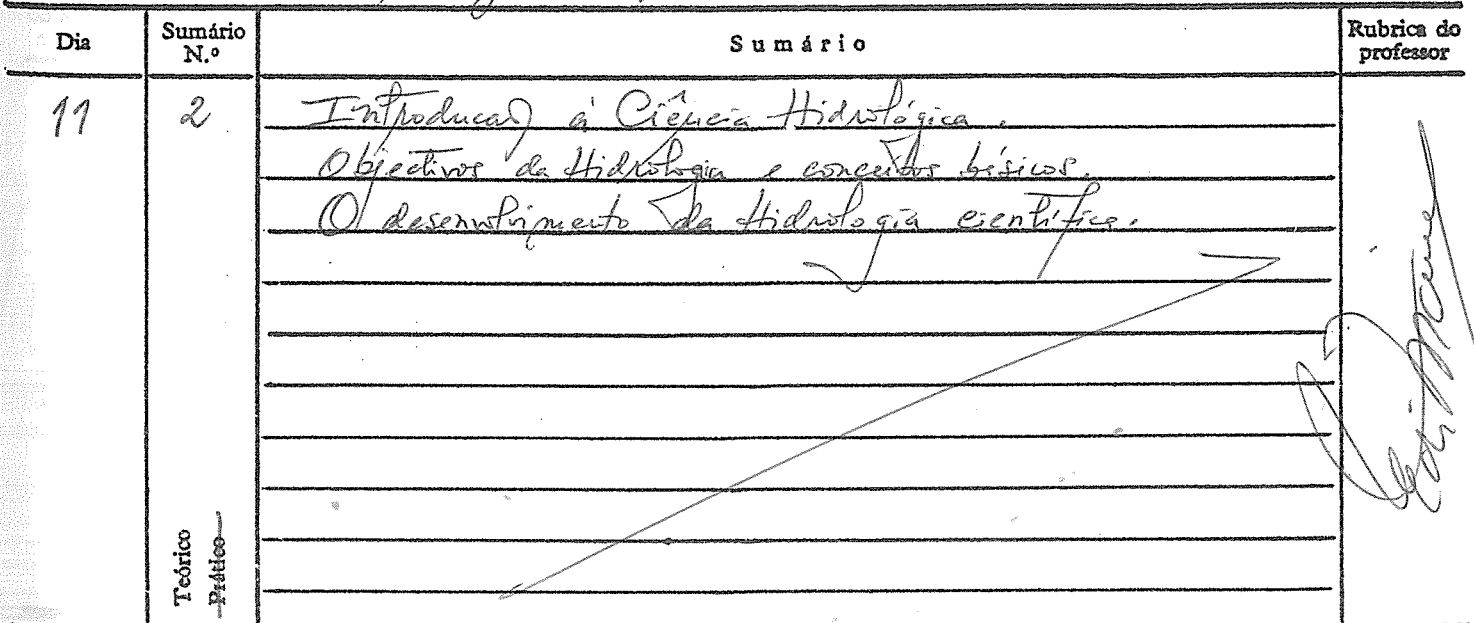 Dia
Sumário N.º
Sumário
Rubrica do professor
11
2
Introdução à Ciência Hidrológica.
Objectivos da Hidrologia e conceitos básicos.
O desenvolvimento da Hidrologia científica.
Teórico
Prático